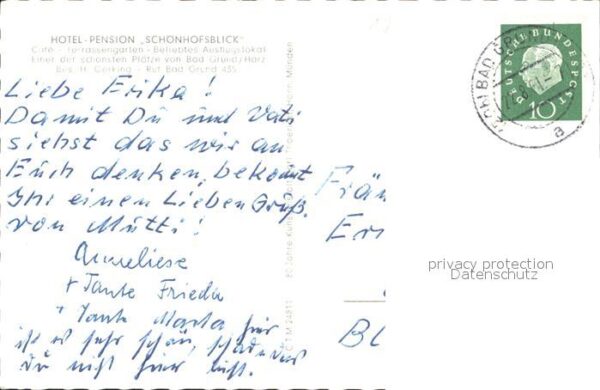 HOTEL-PENSION „SCHÖNHOFSBLICK"
Café - Terrassengarten - Beliebtes Ausflugslokal
Einer der schönsten Plätze von Bad Grund/Harz
Bes. H. Gerking - Ruf Bad Grund 435
Liebe Erika!
Damit Du und Vati
siehst das wir an
Euch denken, bekommt
Ihr einen Lieben Gruß.
von Mutti!
Anneliese
+ Tante Frieda
+ Tante Martha hier
ist es sehr schön, schade das
du nicht hier bist.
Frä
Er
BL
DEUTSCHE BUNDESPOST
10
BAD
a
C T M 24811
privacy protection
Datenschutz